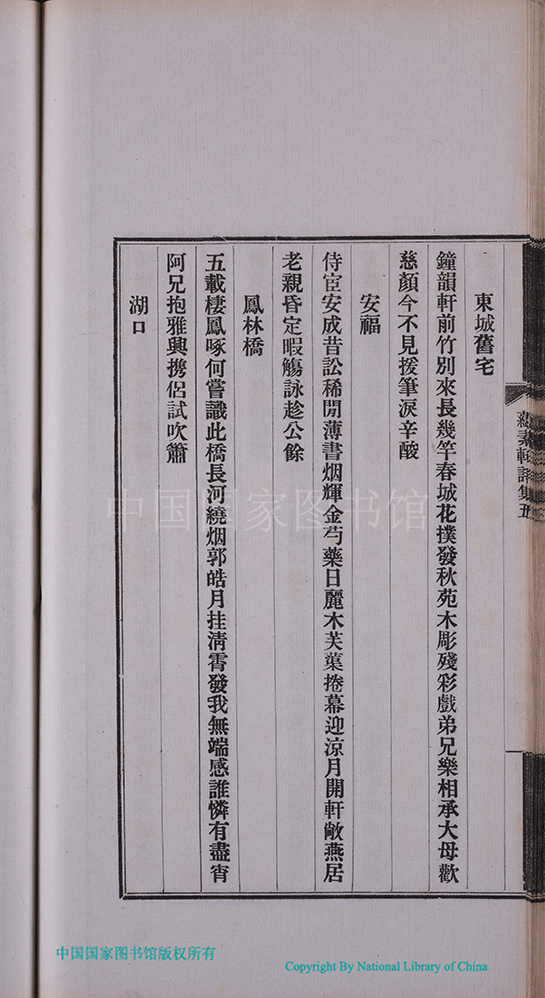 東城舊宅
鐘韻軒前竹別來長幾竿春城花撲發秋苑木彫殘彩戲弟兄樂相承大母歡
慈顏今不見援筆淚辛酸
安福
侍宦安成昔訟稀閒薄書烟輝金芍藥日麗木芙蕖捲幕迎涼月開軒敞燕居
老親昏定暇觴詠趁公餘
鳳林橋
五載棲鳳啄何嘗識此橋長河繞烟郭皓月挂淸霄發我無端感誰憐有盡宵
阿兄抱雅興携侶試吹簫
湖口
素軒詩集五
中国国家图书馆
中国国家图书馆版权所有
Copyright By National Library of China